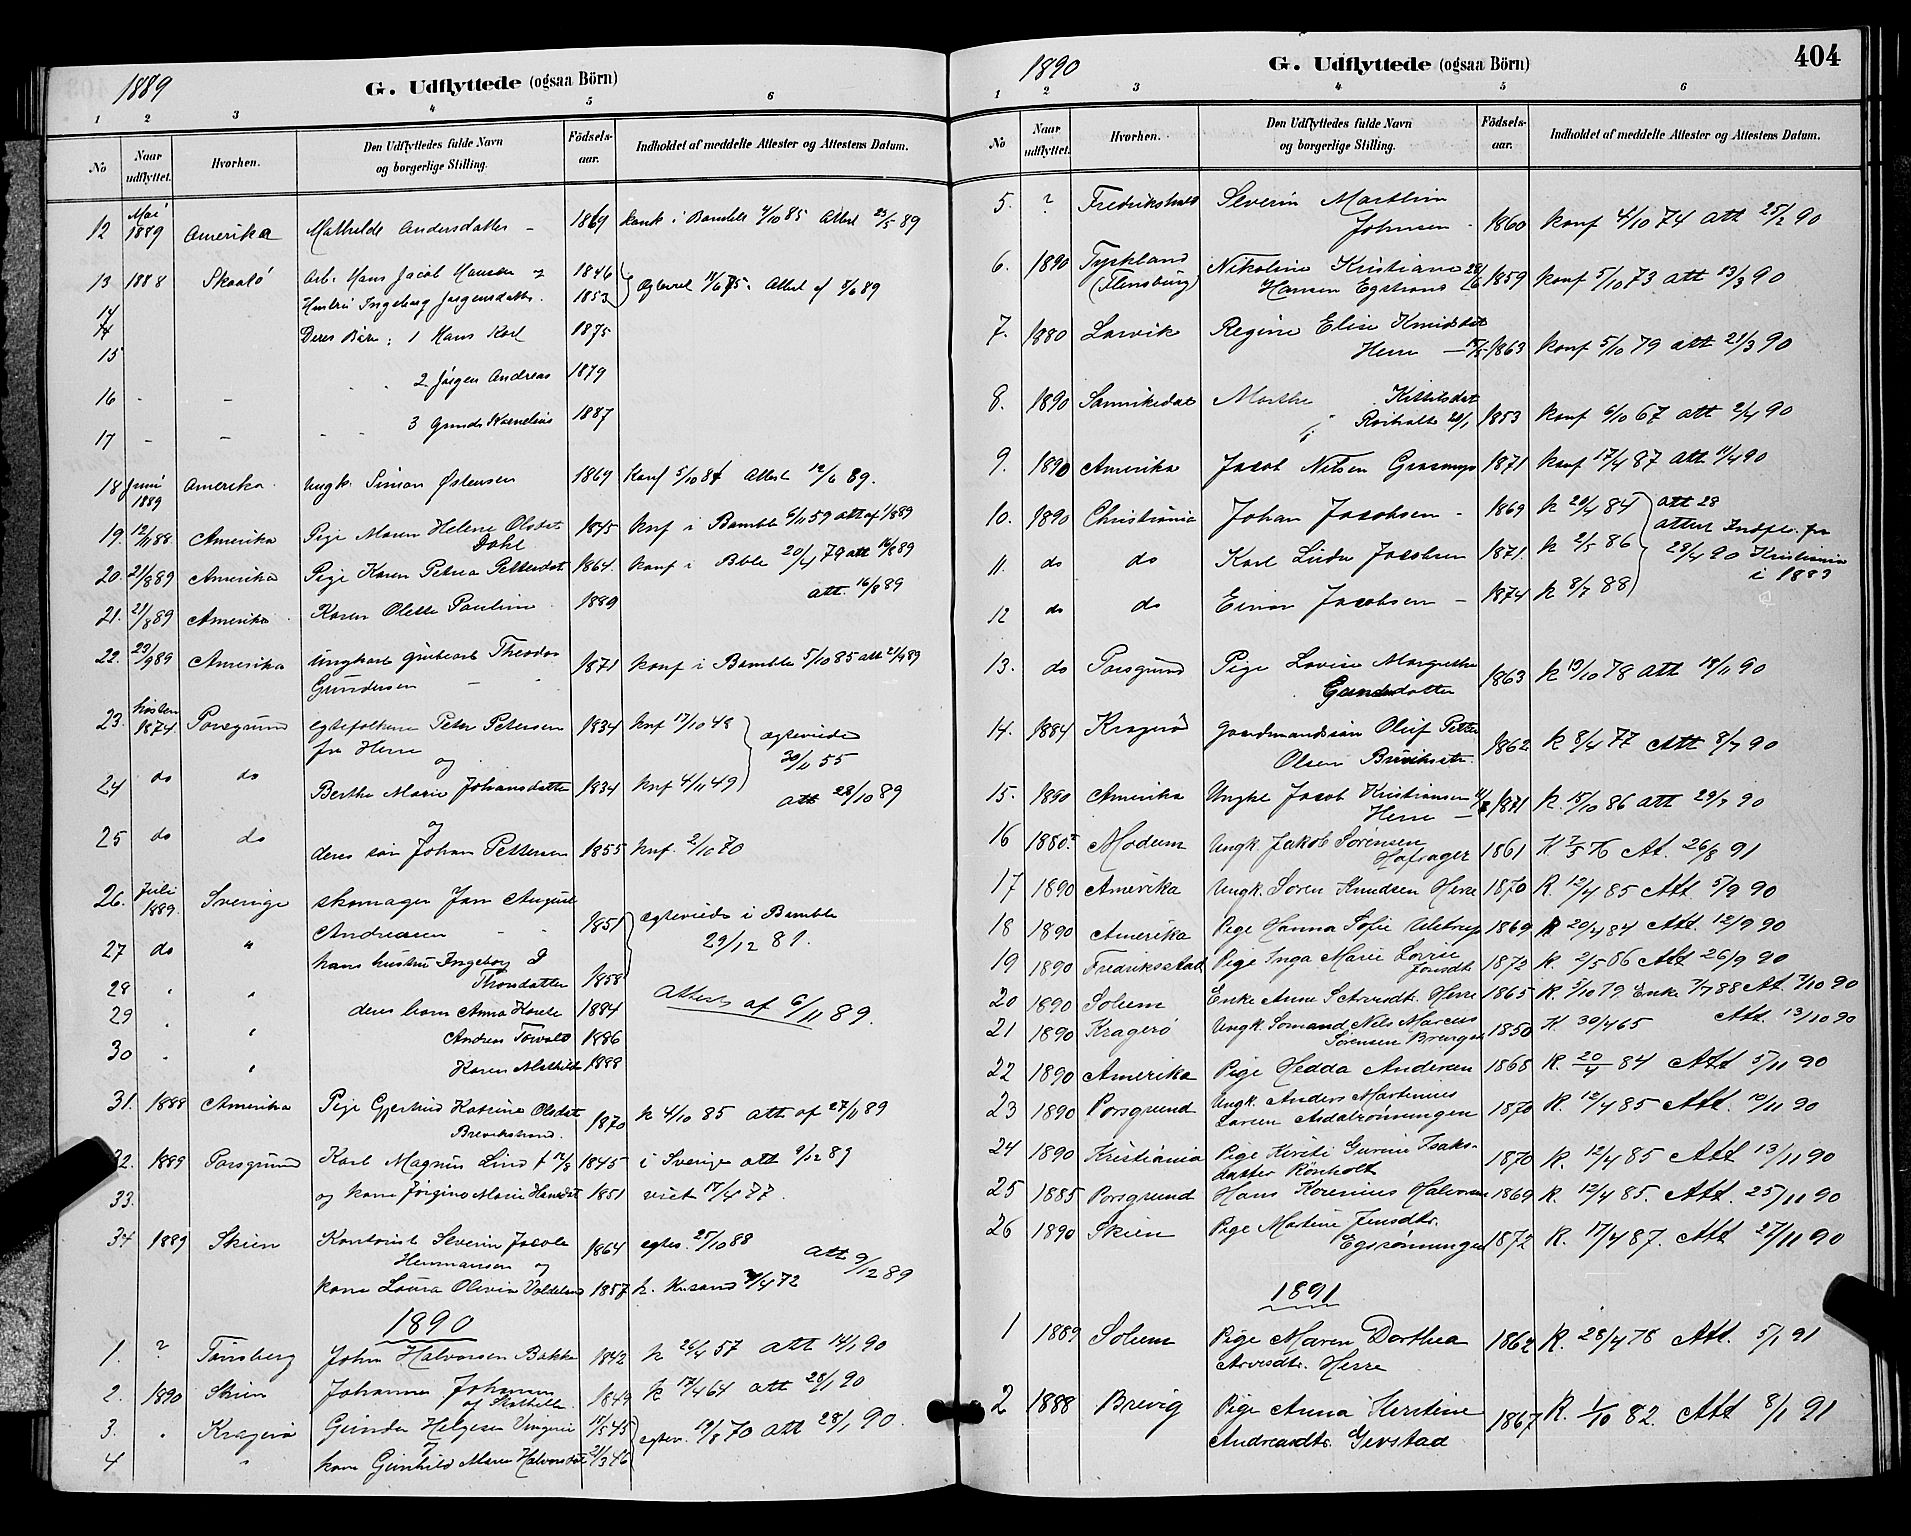 1889
G. Udflyttede (ogsaa Börn)
1 2 3 4 5 6
No
Naar udflyttet.
Hvorhen.
Den Udflyttedes fulde Navn og borgerlige Stilling.
Födsels-aar.
Indholdet af meddelte Attester og Attestens Datum.
12 Mai 1889 Amerika Mathilde Andersdatter - 1869 konf i Bamble 4/10 85 Attest 23/5 89
13 1888 Skaatö Arb. Hans Jacob Hansen og 1846
14 Hustru Ingeborg Jörgensdatter. 1853 Ægteviet Attest af
Deres Börn: 1 Hans Karl 1875
15 2 Jörgen Andreas 1879
16 - - 3 Kornelius 1887
17 - -
18 Juni 1889 Amerika. Ungk. Simon Østensen 1869 Konf 5/10 84 Attest 12/6 89.
19. 12/11 88. Amerika Pige Maren Helene Olsdat Dahl 1845 knf i Bamble 6/11 59 att af 1/8 89
20. 21/8 89 Amerika Pige Karen Petrea Pettersdat 1864. konf i Bble 20/4 79 att 16/8 89
21. 21/8 89 Amerika Karen Olette Pauline 1889 att. 16/8 89
22. 23/9 89 Amerika Ungkarl Theodor Gundersen 1871 konf i Bamble 5/10 85 att 89
23. hösten 1874. Porsgrund egtefolkene Peter Petersen fra Herre 1834 knf 17/10 48
og
24 do do Berthe Marie Johansdatter 1834 knf 4/11 49 egteviede 55
att 28/10 89
25 do do og deres sön Johan Pettersen 1855 knf. 2/10 70
26. Juli 1889. Sverige skomager Jan August Andreasen 1851 egteviede i Bamble 29/12 81.
27 do " hans hustru Ingeborg Thorsdatter 1858
28 " " deres barn Anna 1884 Attest af 6/11 89.
29 " " Andreas Torvald 1886
30 " " Karen Mathilde 1888
31. 1888 Amerika Pige Gjertrud Katrine Olsdat Brevikstrand. 1870 k 4/10 85 att af 27/11 89
32. 1889 Porsgrund Karl Magnus Lind f 1845 i Sverige att 9/12 89
33. og kone Jörgine Marie Hansdat 1851 viet 17/4 77.
34 1889 Skien Kontorist Severin Jacob Hermansen og 1864 egtev. 27/10 88 att 9/12 89
kone Laura Olivia 1857 k. Krsand 72
1890
1. ? Tönsberg John Halvorsen Bakke 1842 k 26/4 57 att 14/1 90
2. 1890 Skien Johanne Johansen 1849 k 17/4 64 att 28/1 90
3. " Kragerö Gunder Helgesen 45 egtev. 19/8 70 att 28/1 90.
4 " kone Gunhild Marie Halvorsdat 21/3 46
1890
G. Udflyttede (ogsaa Börn)
404
1 2 3 4 5 6
No
Naar udflyttet.
Hvorhen.
Den Udflyttedes fulde Navn og borgerlige Stilling.
Födsels-aar.
Indholdet af meddelte Attester og Attestens Datum.
5. ? Fredrikshald Severin Marthin Johnsen - 1860 konf 4/10 74 att 25/2 90
6. 1890 Tyskland (Flensburg) Nikoline Kristiane Hansen Egstrand 1859 konf 5/10 73 att 13/3 90
7. 1880 Larvik Regine Elise Knudsdat Herre - 1863 konf 5/10 79 att 21/3 90
8. 1890 Sannikedal Marthe Kittilsdat 1853 konf 6/10 67 att 2/4 90
9. 1890 Amerika Jacob Nilsen 1871 konf 17/4 87 att 11/4 90
10. 1890 Christiania Johan Jacobsen - 1869 k 20/4 84 att 28
11. do do Karl Jacobsen 1871. k 2/5 86 attest Indfl. fra
29/4 90 Kristiania i 1883
12 do do Einar Jacobsen - 1874 k 8/7 88
13. do Porsgrund Pige Lovise Margrethe Gundersdatter 1863 k 13/10 78 att 18/11 90
14. 1884 Kragerö gaardmandssön Oluf Petter Olsen 1862 k 8/4 77 Att 8/7 90
15. 1890 Amerika Ungkl Jacob Kristiansen Herre - 1871 k. 18/10 86 att 29/7 90
16 1880? Modum Ungk. Jakob Sörensen Hafsager 1861 K 7/5 76 At. 26/8 91
17 1890 Amerika Ungk. Sören Knudsen Herre 1870 K. 12/4 85 Att 5/9 90
18 1890 Amerika Pige Hanna Sofie Ulstrup 1869 K 20/4 84 Att. 12/9 90
19 1890 Fredriksstad Pige Inga Marie Lovise Jonsdt 1872 K. 2/5 86 Att 26/9 90
20 1890 Solum Enke Anne S Arvesdt. Herre 1865 K. 5/10 79 Enke 7/7 88 At. 7/10 90
21 1890 Kragerö Ungk. Sömand Nils Marcus Sörensen 1850 K 30/4 65 Att. 13/10 90
22 1890 Amerika Pige Hedda Andersen 1868 K. 20/4 84 Att 5/11 90
23 1890 Porsgrund Ungk. Anders Martinius Larsen Asdalrönningen 1870 K. 12/4 85 Att. 10/11 90
24 1890 Kristiania Pige Kirsti Gurine Isaksdatter Rönholt 1870 K. 12/4 85 Att 13/11 90
25 1885 Porsgrund Hans Korenius Halvorsen 1869 K. 12/4 85. Att. 25/11 90
26 1890 Skien Pige Martine Jensdtr. Egsrönningen 1872 K. 17/4 87. Att 27/11 90
1891
1 1889 Solum Pige Maren Dorthea Arvesdt. Herre 1862 K. 28/4 78 Att. 5/1 91
2 1888 Brevig Pige Anna Kerstine Andreasdtr. Gjerstad 1867 K. 1/10 82. Att 8/1 91